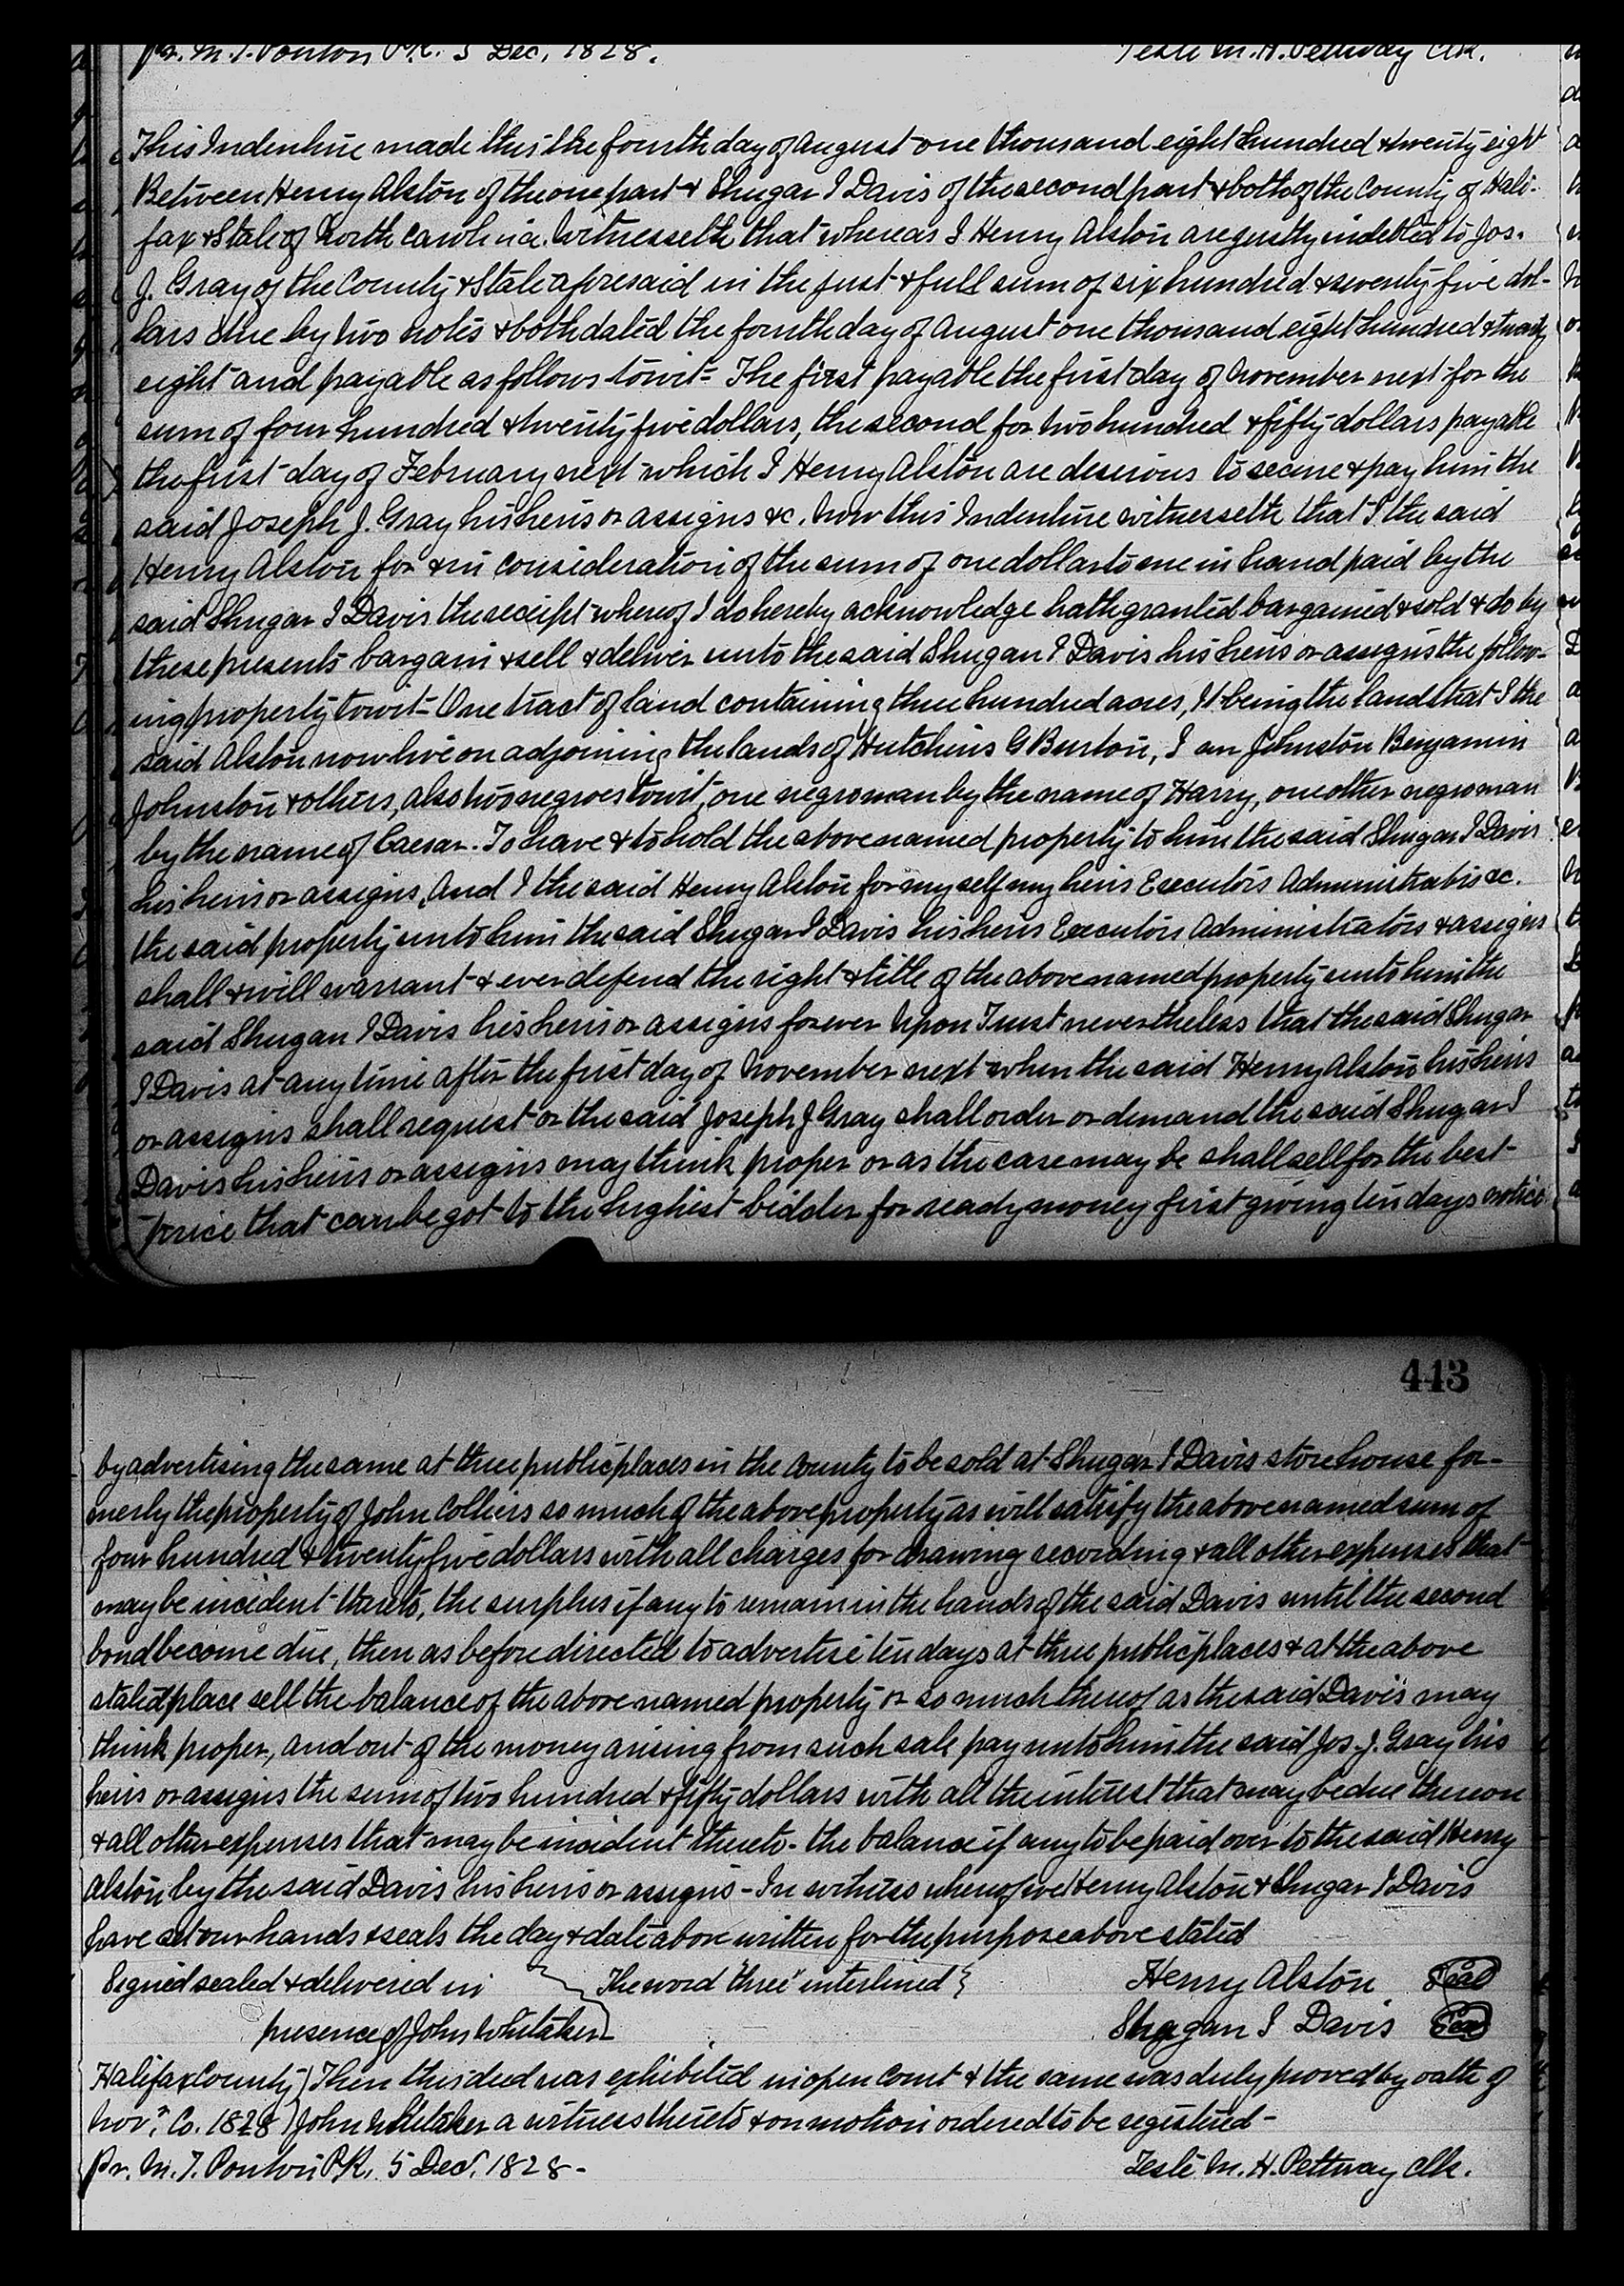 Pr. M. T. Ponton P.R. 5 Dec, 1828. Teste M. H. Pettway Clk.
This Indenture made this the fourth day of August one thousand eight hundred & twenty eight
Between Henry Alston of the one part & Shugar I Davis of the second part & both of the County of Hali-
fax & State of North Carolina. Witnesseth that whereas I Henry Alston are justly indebted to Jos.
J. Gray of the County & State aforesaid in the just & full sum of six hundred & seventy five dol-
lars due by two notes & both dated the fourth day of August one thousand eight hundred & twenty
eight and payable as follows towit- The first payable the first day of November next for the
sum of four hundred & twenty five dollars, the second for two hundred & fifty dollars payable
the first day of February next which I Henry Alston are desirous to secure & pay him the
said Joseph J. Gray his heirs or assigns &c. Now this Indenture witnesseth that I the said
Henry Alston for & in consideration of the sum of one dollar to me in hand paid by the
said Shugar I Davis the receipt whereof I do hereby acknowledge hath granted bargained & sold & do by
these presents bargain & sell & deliver unto the said Shugar I Davis his heirs or assigns the follow-
ing property towit- One tract of land containing three hundred acres, It being the land that I the
said Alston now live on adjoining the lands of Hutchins G Burton, I am Johnston Benjamin
Johnston & others, also two negroes towit, one negro man by the name of Harry, one other negro man
by the name of Caesar. To have & to hold the above named property to him the said Shugar I Davis
his heirs or assigns, And I the said Henry Alston for myself my heirs Executors Administrators &c.
the said property unto him the said Shugar I Davis his heirs Executors Administrators & assigns
shall & will warrant & ever defend the right & title of the above named property unto him the
said Shugar I Davis his heirs or assigns forever Upon Trust nevertheless that the said Shugar
I Davis at any time after the first day of November next when the said Henry Alston his heirs
or assigns shall request or the said Joseph J Gray shall order or demand the said Shugar I
Davis his heirs or assigns may think proper or as the case may be shall sell for the best
price that can be got to the highest bidder for ready money first giving ten days notice
443
by advertising the same at three public places in the County to be sold at Shugar I Davis store house for-
merly the property of John Colliers so much of the above property as will satisfy the above named sum of
four hundred & twenty five dollars with all charges for drawing recording & all other expenses that
may be incident thereto, the surplus if any to remain in the hands of the said Davis until the second
bond become due, then as before directed to advertise ten days at three public places & at the above
stated place sell the balance of the above named property or so much thereof as the said Davis may
think proper, and out of the money arising from such sale pay unto him the said Jos. J. Gray his
heirs or assigns the sum of two hundred & fifty dollars with all the interest that may be due thereon
& all other expenses that may be incident thereto- the balance if any to be paid over to the said Henry
Alston by the said Davis his heirs or assigns - In witness whereof we Henry Alston & Shugar I Davis
have set our hands & seals the day & date above written for the purpose above stated
Signed sealed & delivered in The word "three" interlined Henry Alston Seal
presence of John Whitaker Shugar I Davis Seal
Halifax County Then this deed was exhibited in open Court & the same was duly proved by oath of
Nov. Co. 1828 John Whitaker a witness thereto & on motion ordered to be registered-
Pr. M. T. Ponton P.R. 5 Dec. 1828- Teste M. H. Pettway Clk.